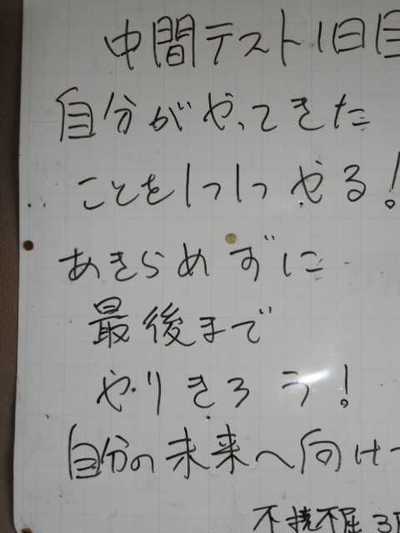 中間テスト1日目
自分がやってきた
ことを1つ1つやる!
あきらめずに
最後まで
やりきろう!
自分の未来へ向け
不撓不屈 3